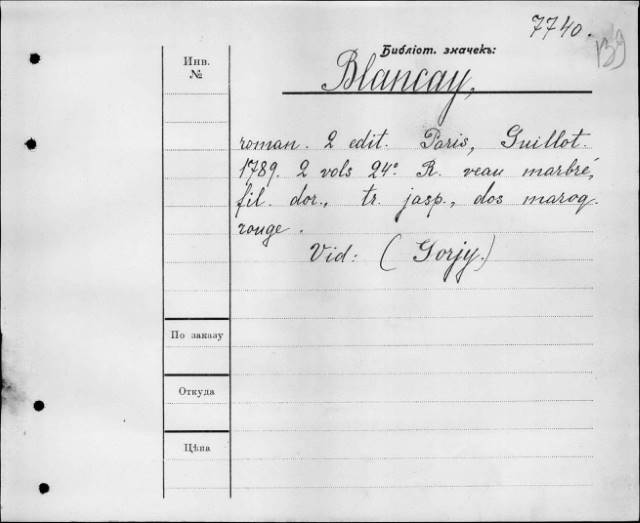 7740.
139
Библіот. значекъ:
Инв.
№
Blançay,
roman. 2 edit. Paris, Guillot.
1789. 2 vols 24° R. veau marbré,
fil. dor., tr. jasp., dos maroq.
rouge.
Vid: (Gorjy.)
По заказу
Откуда
Цѣна